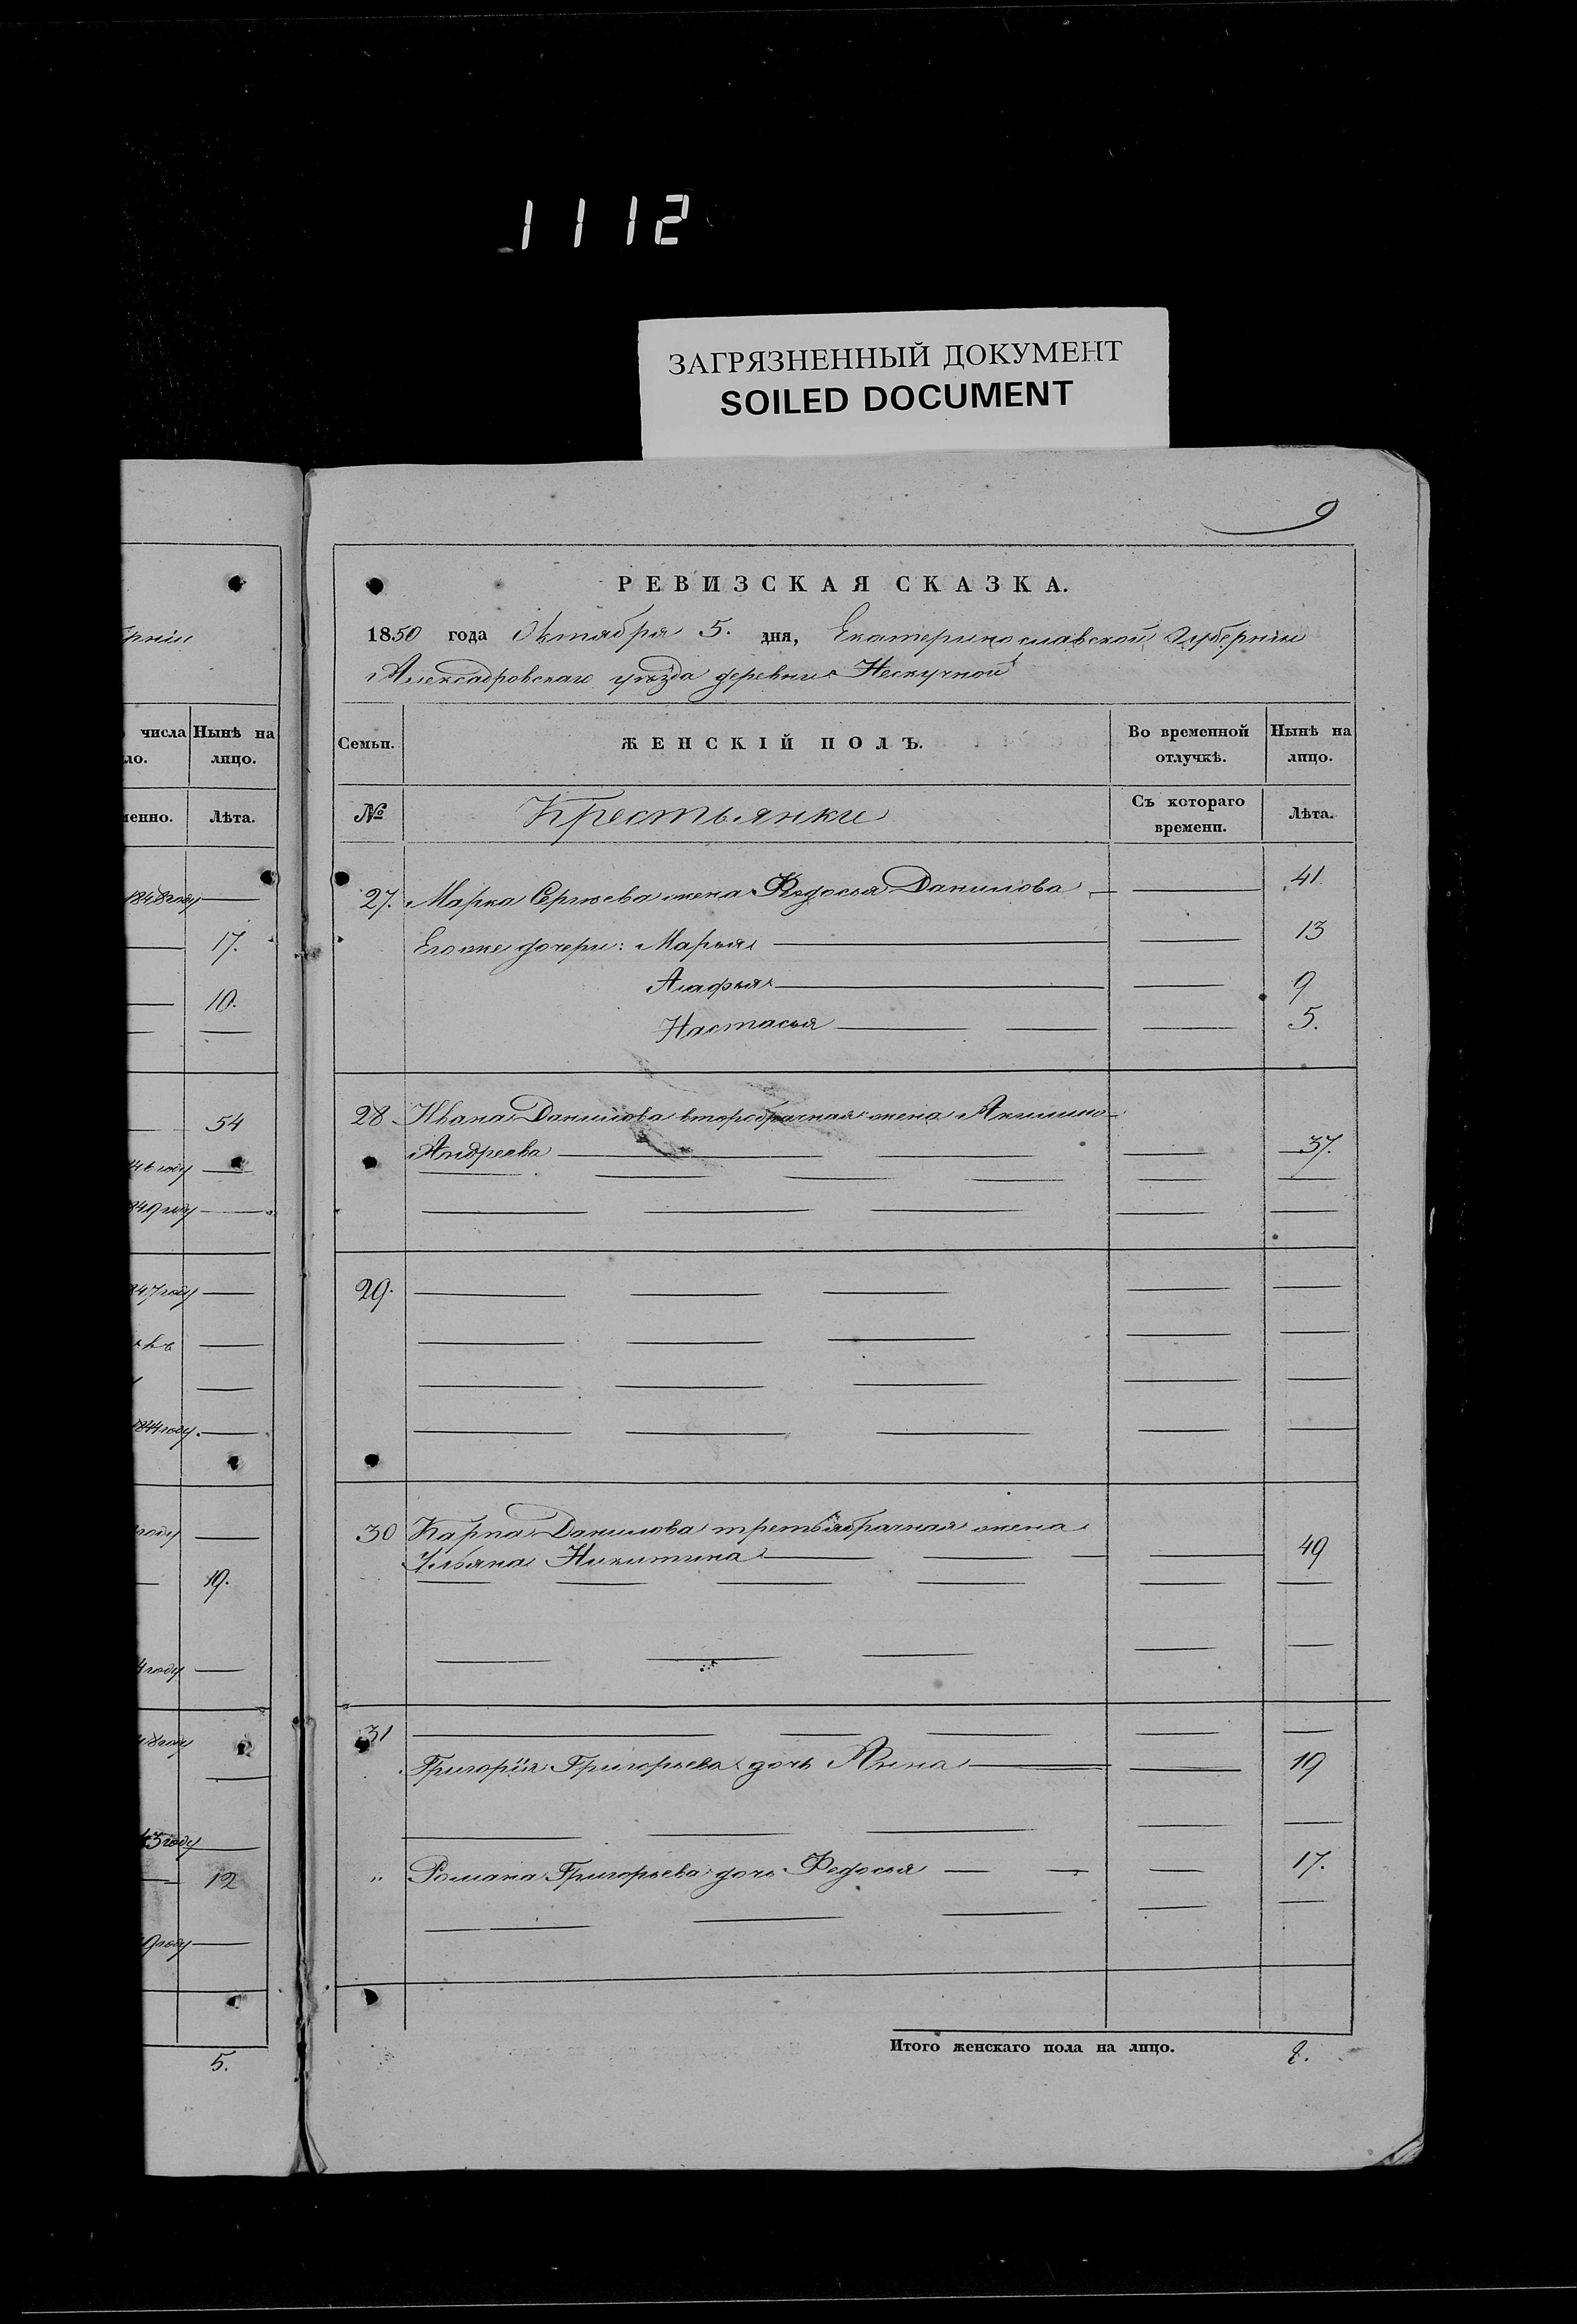 1112
ЗАГРЯЗНЕННЫЙ ДОКУМЕНТ
SOILED DOCUMENT
9
РЕВИЗСКАЯ СКАЗКА.
1850 года Октября 5. дня, Екатеринославской Губернии
Алексадровскаго уѣзда деревни Нескучной
Семьи.
ЖЕНСКІЙ ПОЛЪ.
Во временной отлучкѣ.
Нынѣ на лицо.
№
Крестьянки
Съ котораго времени.
Лѣта.
27. Марка Сергѣева жена Федосья Данилова 41
Его же дочери: Марья 13
Агафья 9
Настасья 5.
28 Ивана Данилова второбрачная жена
Андреева 37.
29.
30 Карпа Данилова третьябрачная жена
Ульяна Никитина 49
31
Григорія Григорьева дочь Анна 19
" Романа Григорьева дочь Федосья 17.
Итого женскаго пола на лицо. 8.
рніи
числа
ло.
Нынѣ на лицо.
менно.
Лѣта.
1848 году
17.
10.
54
46 году
849 году
847 году
844 году.
году
19.
4 году
48 году
43 году
12
9 году
5.